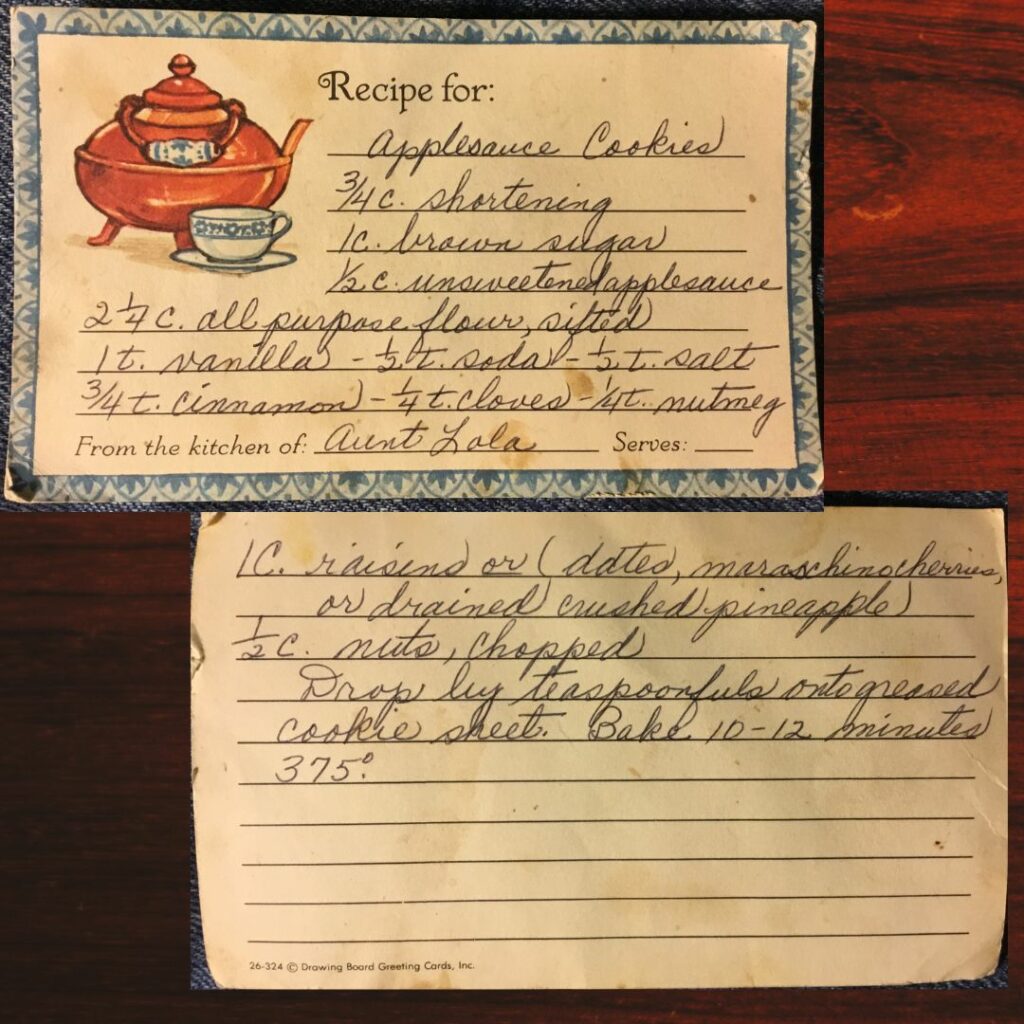 Recipe for:
Applesauce Cookies
3/4 c. shortening
1 c. brown sugar
1/2 c. unsweetened applesauce
2 1/4 c. all purpose flour, sifted
1 t. vanilla - 1/2 t. soda - 1/2 t. salt
3/4 t. cinnamon - 1/4 t. cloves - 1/4 t. nutmeg
From the kitchen of: Aunt Lola Serves:
1 C. raisins or (dates, maraschino cherries,
or drained crushed pineapple)
1/2 c. nuts, chopped
Drop by teaspoonfuls onto greased
cookie sheet. Bake 10-12 minutes
375°.
26-324 © Drawing Board Greeting Cards, Inc.